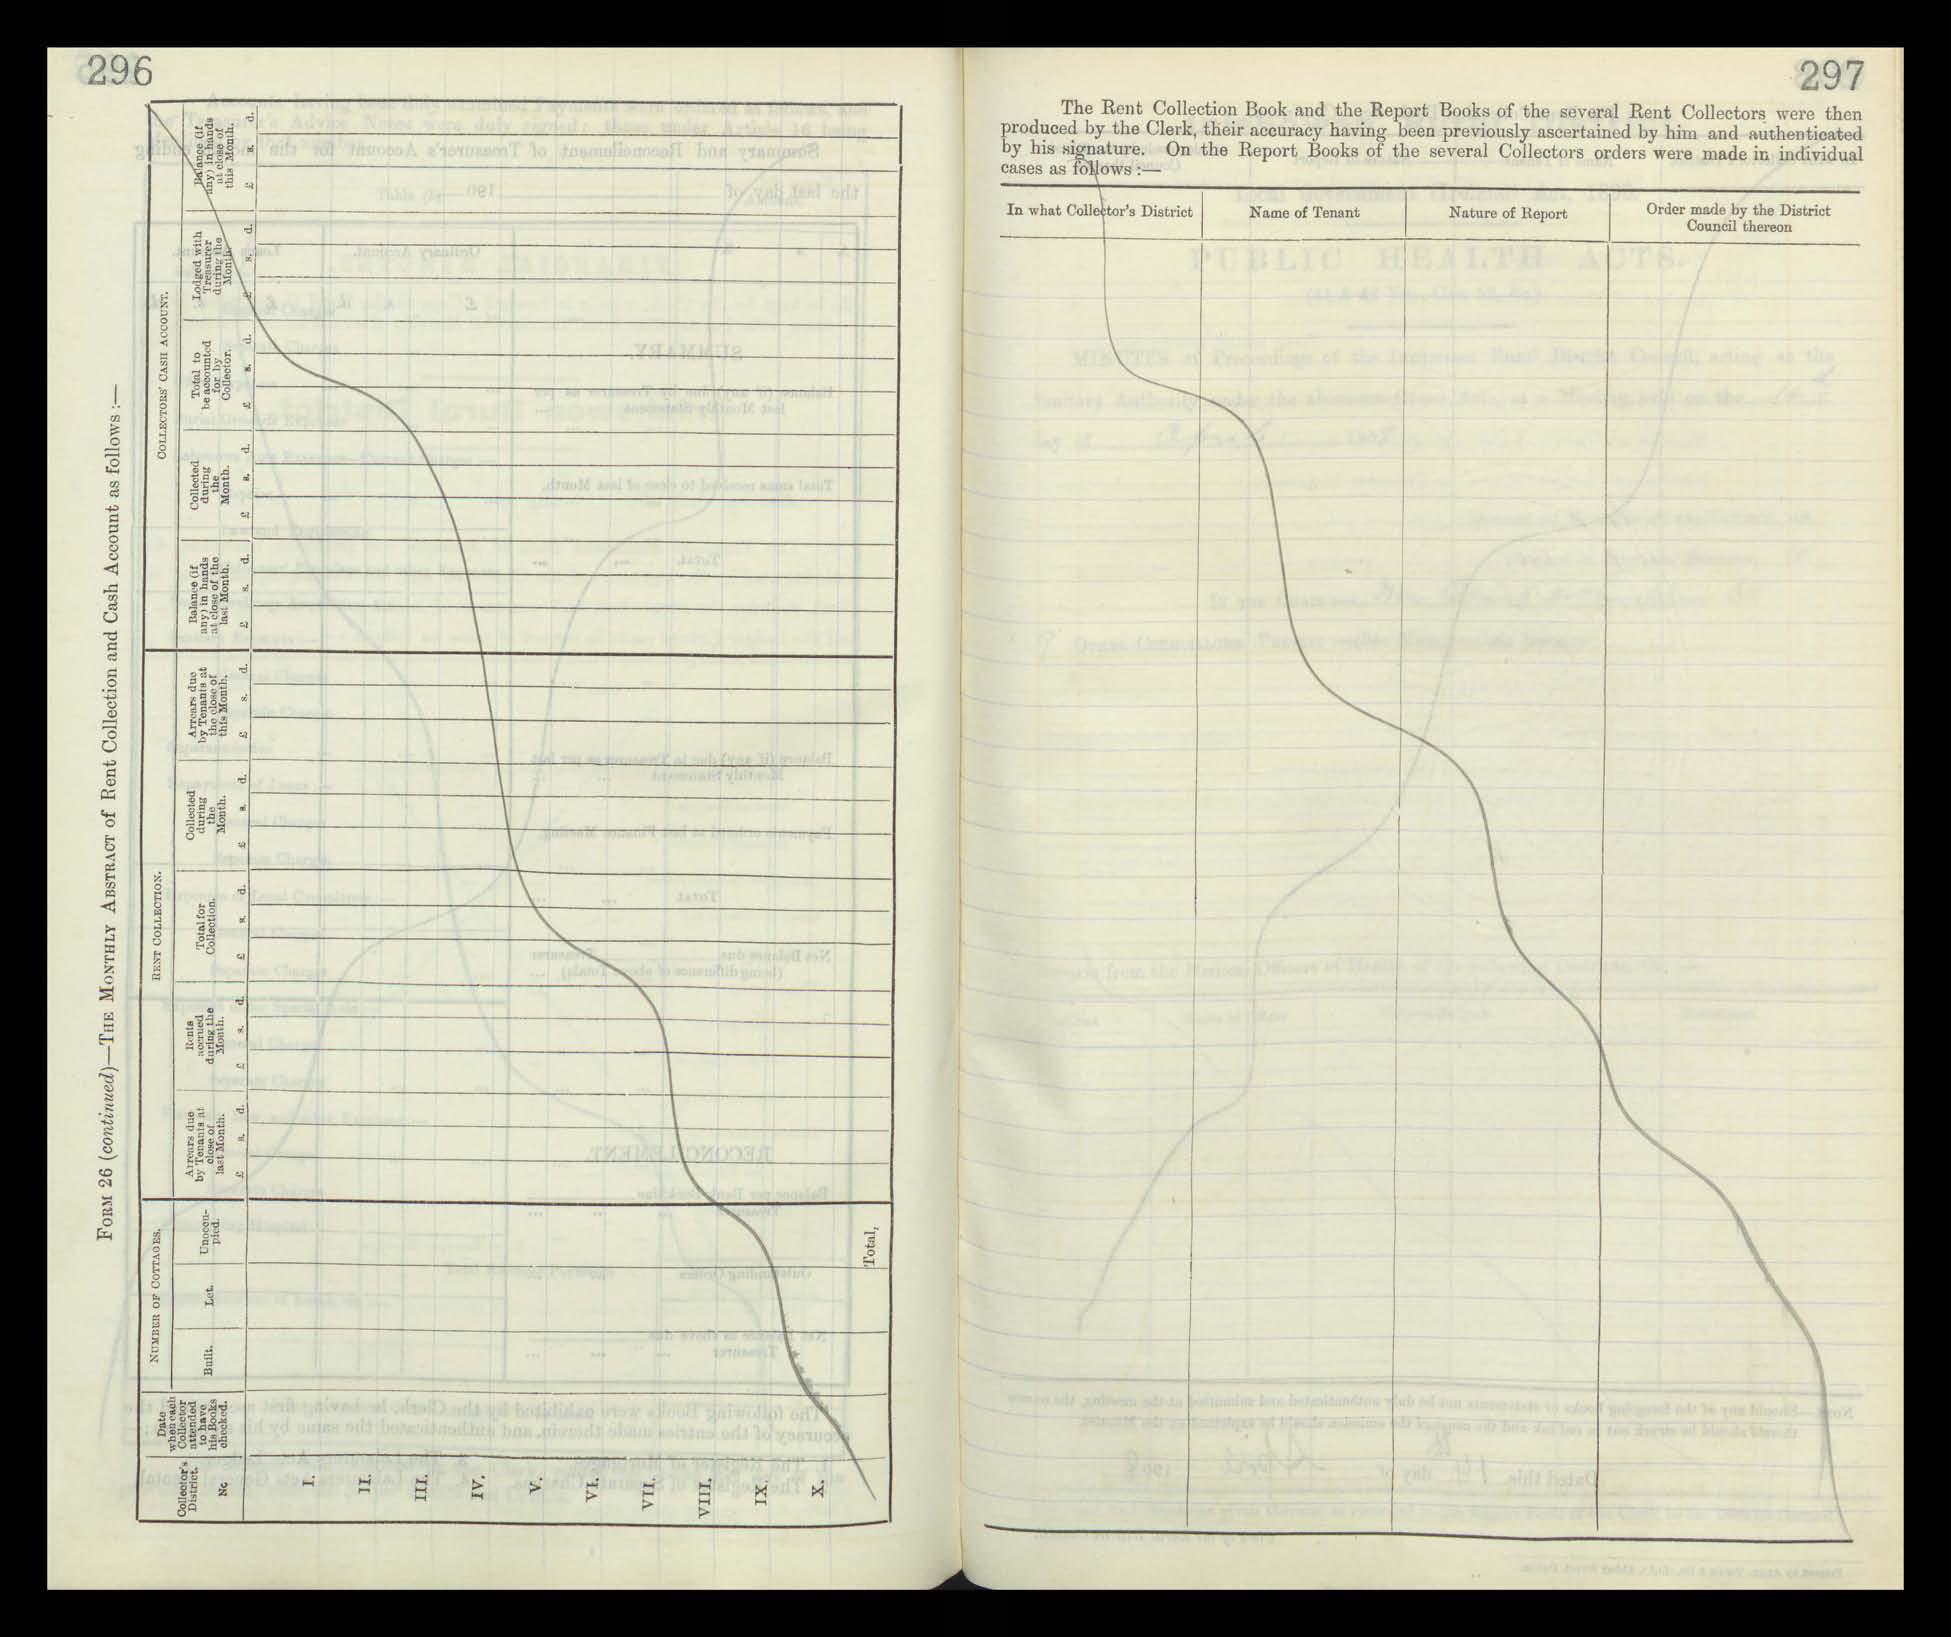 296
FORM 26 (continued)—THE MONTHLY ABSTRACT of Rent Collection and Cash Account as follows :—
Collector's
District.
No
Date
when each
Collector
attended
to have
his Books
checked.
NUMBER OF COTTAGES.
Built.
Let.
Unoccu-
pied.
RENT COLLECTION.
Arrears due
by Tenants at
close of
last Month.
£ s. d.
Rents
accrued
during the
Month.
£ s. d.
Total for
Collection.
£ s. d.
Collected
during
the
Month.
£ s. d.
Arrears due
by Tenants at
the close of
this Month.
£ s. d.
COLLECTORS' CASH ACCOUNT.
Balance (if
any) in hands
at close of the
last Month.
£ s. d.
Collected
during
the
Month.
£ s. d.
Total to
be accounted
for by
Collector.
£ s. d.
Lodged with
Treasurer
during the
Month.
£ s. d.
Balance (if
any) in hands
at close of
this Month.
£ s. d.
I.
II.
III.
IV.
V.
VI.
VII.
VIII.
IX.
X.
Total,
297
The Rent Collection Book and the Report Books of the several Rent Collectors were then
produced by the Clerk, their accuracy having been previously ascertained by him and authenticated
by his signature. On the Report Books of the several Collectors orders were made in individual
cases as follows :—
In what Collector's District
Name of Tenant
Nature of Report
Order made by the District
Council thereon